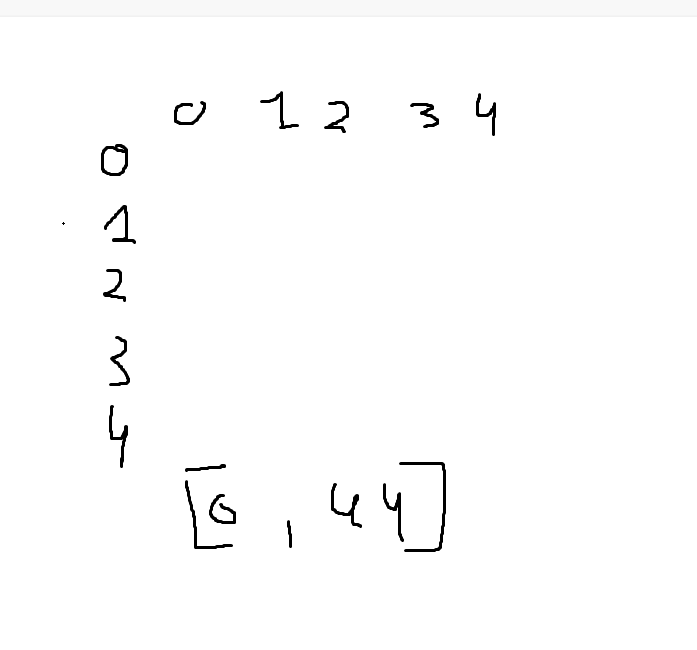 0 1 2 3 4
0
1
2
3
4
[0, 44]